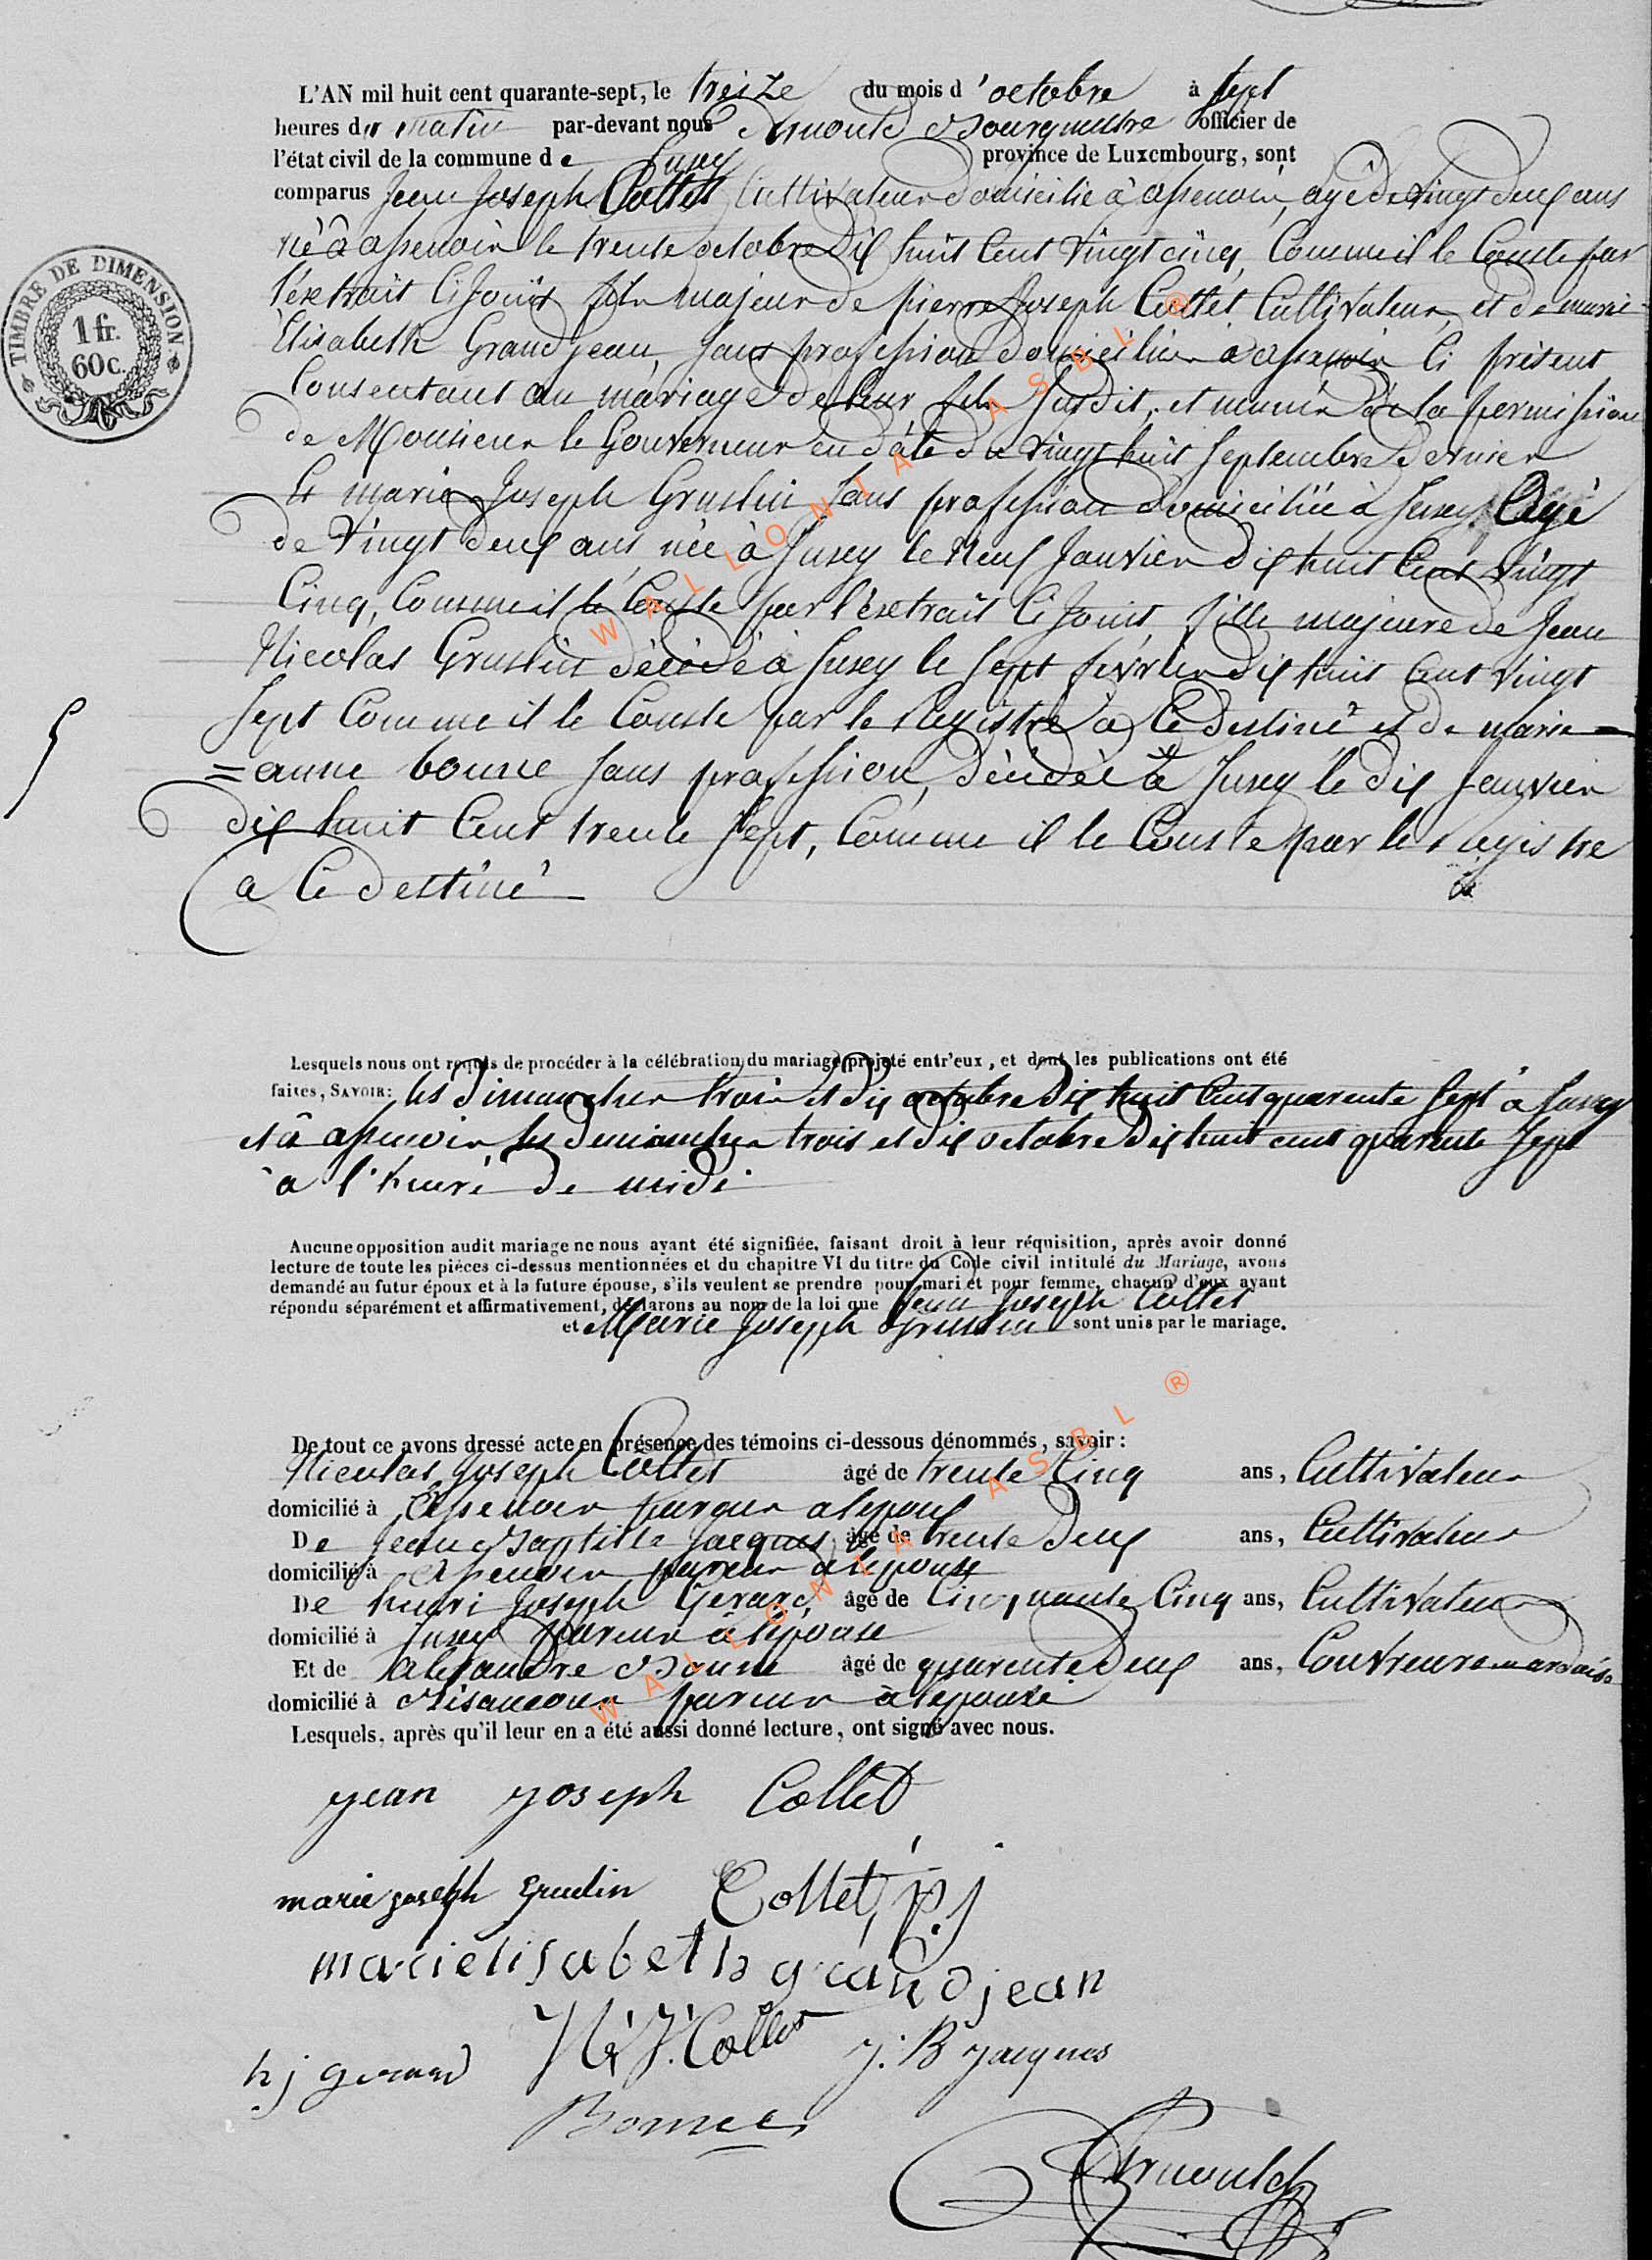 L'AN mil huit cent quarante-sept, le treize du mois d'octobre à sept
heures du matin par-devant nous Arnould Bourgmestre officier de
l'état civil de la commune de Juzey province de Luxembourg, sont
comparus Jean Joseph Collet Cultivateur domicilié à assenoir, agé de vingt deux ans
né à assenoir le trente octobre dix huit Cent vingt cinq, Comme il le Conste par
l'extrait Ci Joint fils majeur de pierre Joseph Collet Cultivateur, et de marie
TIMBRE DE DIMENSION
1 fr.
60 c.
Elisabeth Grandjean, sans profession domiciliés à assenoir Ci présent
Consentant au mariage de leur fils susdit, et munis de la permission
de Monsieur le Gouverneur en date du vingt huit septembre dernier
Et marie Joseph Gruslin sans profession domiciliée à Jusey, Agé
de vingt deux ans, née à Jusey le Neuf Janvier dix huit Cent vingt
Cinq, Comme il le Conste par l'extrait Ci Joint, fille majeure de Jean
Nicolas Gruslin décédé à Jusey le sept février dix huit Cent vingt
sept Comme il le Conste par le Registre a Ce destiné et de marie =
= anne bonne sans profession, décédée à Jusey le dix Janvier
dix huit Cent trente sept, Comme il le Conste par le registre
a Ce destiné
Lesquels nous ont requis de procéder à la célébration du mariage projeté entr'eux, et dont les publications ont été
faites, SAVOIR: les dimanches trois et dix octobre dix huit Cent quarente sept à Jusey
et à assenoir les dimanches trois et dix octobre dix huit cent quarente sept
à l'heure de midi
Aucune opposition audit mariage ne nous ayant été signifiée, faisant droit à leur réquisition, après avoir donné
lecture de toute les pièces ci-dessus mentionnées et du chapitre VI du titre du Code civil intitulé du Mariage, avons
demandé au futur époux et à la future épouse, s'ils veulent se prendre pour mari et pour femme, chacun d'eux ayant
répondu séparément et affirmativement, déclarons au nom de la loi que Jean Joseph Collet
et Marie Joseph Gruslin sont unis par le mariage.
De tout ce avons dressé acte en présence des témoins ci-dessous dénommés, savoir:
Nicolas Joseph Collet âgé de trente Cinq ans, Cultivateur
domicilié à Assenoir parent a lepoux
De Jean Baptiste Jacques âgé de trente deux ans, Cultivateur
domicilié à Assenoir parent a lepouse
De henri Joseph Gerard âgé de Cinquante Cinq ans, Cultivateur
domicilié à Jusey parent a lepouse
Et de alexandre Bonne âgé de quarente deux ans, Couvreur en ardoise
domicilié à parent à lepouse
Lesquels, après qu'il leur en a été aussi donné lecture, ont signé avec nous.
jean joseph Collet
marie joseph gruslin Collet, p.j
marielisabeth grandjean
N. J. Collet J. B Jacques
h j gerard
Bonne
Arnould
WALLONIA ASBL ®
WALLONIA ASBL ®